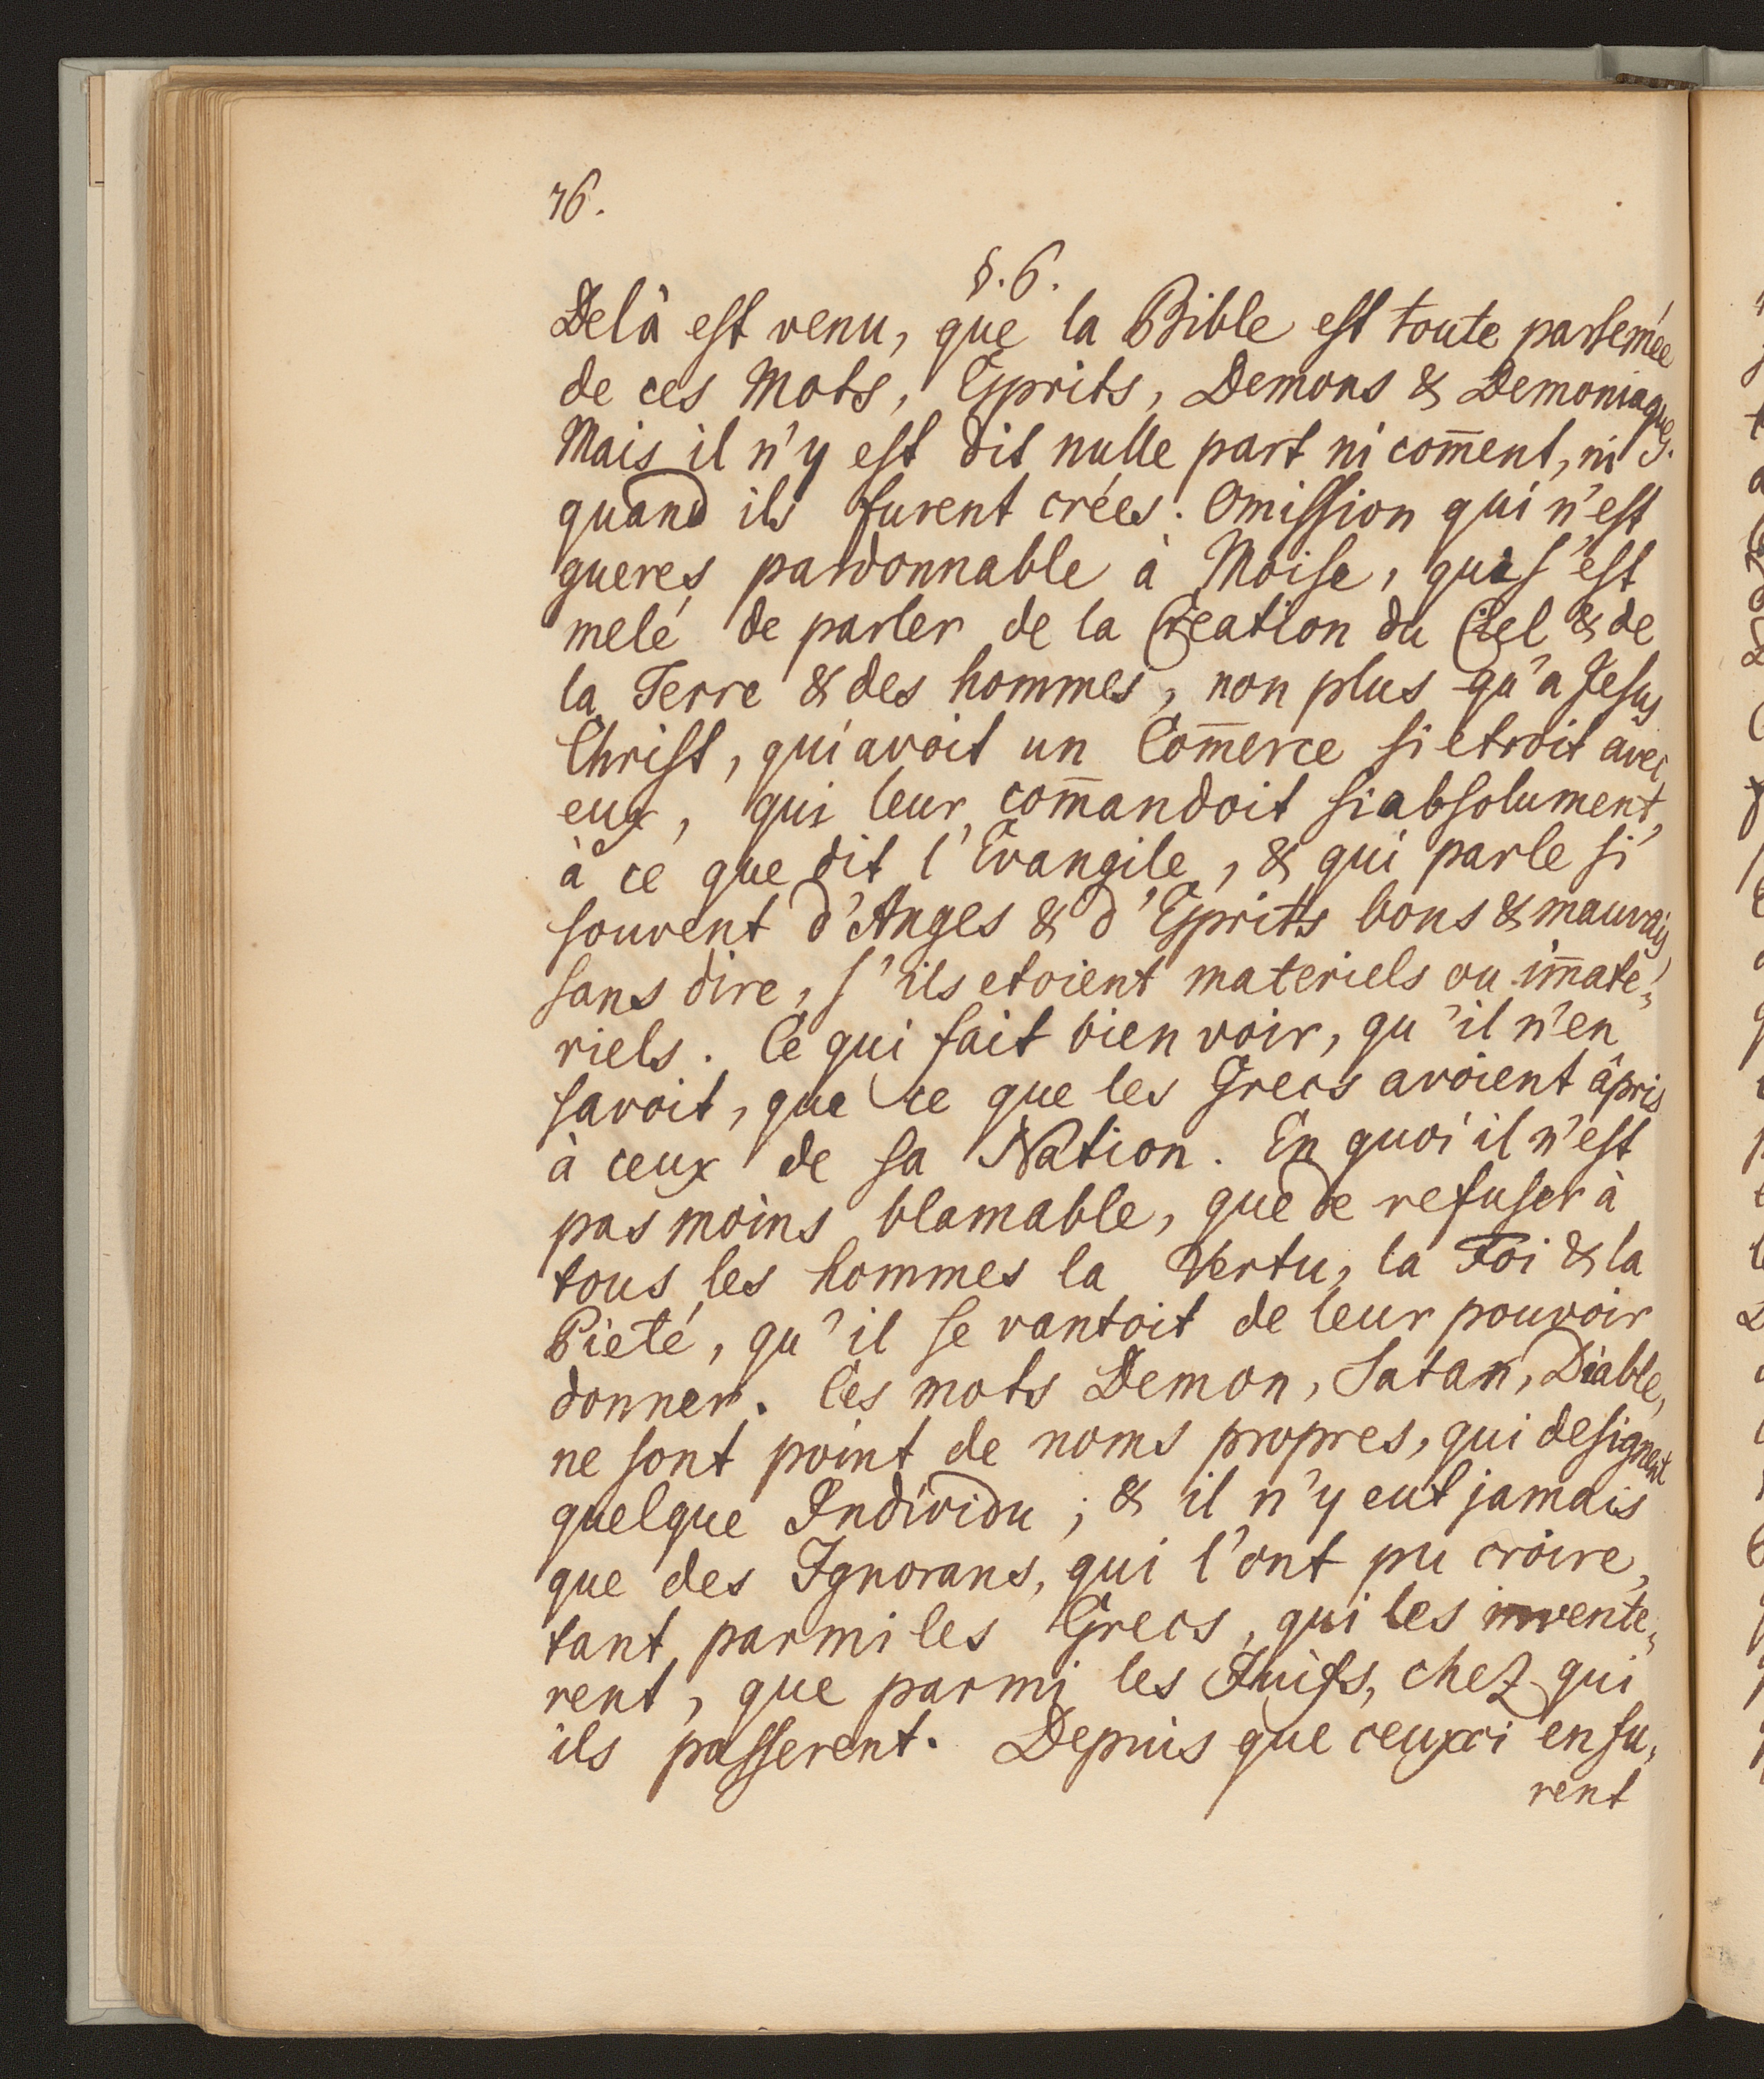 76.
§. 6.
Delà est venu, que la Bible est toute parsemée
de ces Mots, Esprits, Demons & Demoniaques.
Mais il n'y est dit nulle part ni com̄ent, ni
quand ils furent crées. Omission qui n'est
gueres pardonnable à Moise, qui s'est
melé de parler de la Creation du Ciel & de
la Terre & des hommes, non plus qu'a Jesus
Christ, qui avoit un Com̄erce si etroit avec
eux, qui leur com̄andoit si absolument,
à ce que dit l'Evangile, & qui parle si
souvent d'Anges & d'Esprits bons & mauvais
sans dire, s'ils etoient materiels ou im̄ate⸗
riels. Ce qui fait bien voir, qu'il n'en
savoit, que ce que les Grecs avoient âpris
à ceux de sa Nation. En quoi il n'est
pas moins blamable, que de refuser à
tous les hommes la Vertu, la Foi & la
Pieté, qu'il se vantoit de leur pouvoir
donner. Ces mots Demon, Satan, Diable,
ne sont point de noms propres, qui designent
quelque Individu; & il n'y eut jamais
que des Ignorans, qui l'ont pu croire,
tant parmi les Grecs, qui les invente⸗
rent, que parmi les Juifs, chez qui
ils passerent. Depuis que ceuxci en fu⸗
rent